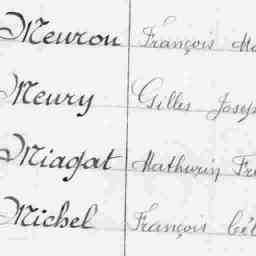 Meurou François
Meury Gilles
Miagat Mathurin
Michel François